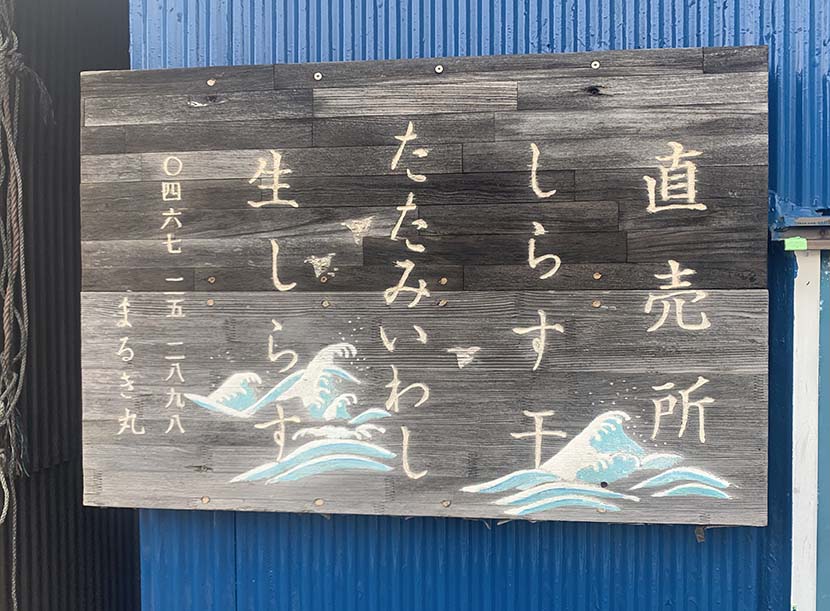 直売所
しらす干
たたみいわし
生しらす
〇四六七 二五 二八九八
まるき丸